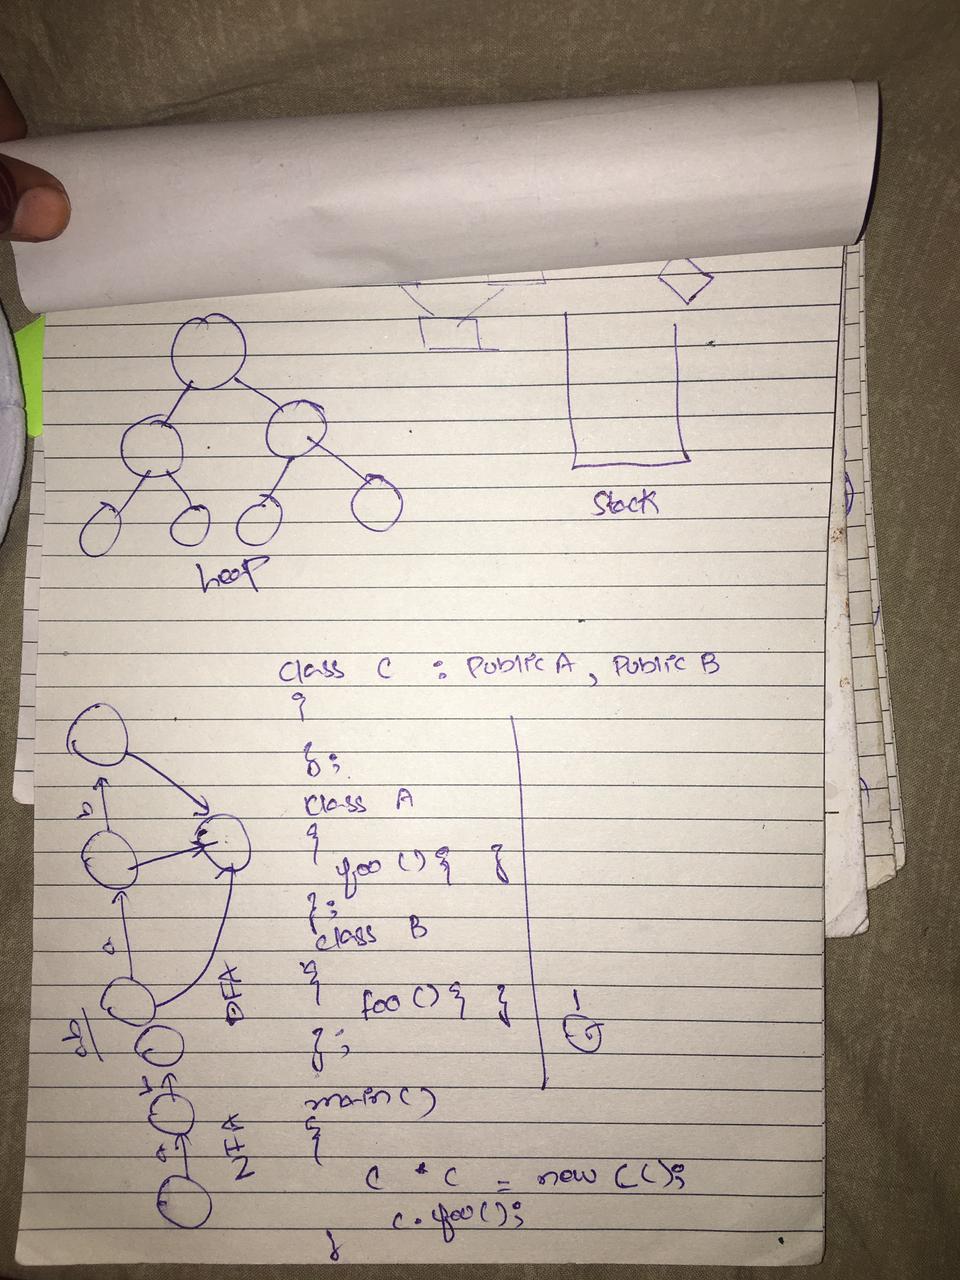 Stack
heap
class C : Public A, Public B
{
};
class A
{
foo () { }
};
class B
{
foo () { }
};
main()
{
C * C = new C();
c.foo();
}
DFA
NFA